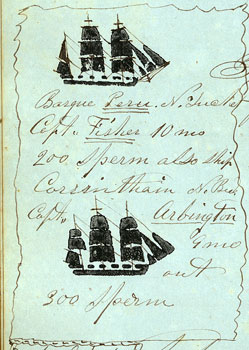 Barque Peru N. Tucket
Capt. Fisher 10 mo
200 Sperm also ship
Corrinthain N. Bed
Capt. Arbington
9 mo
out
300 Sperm